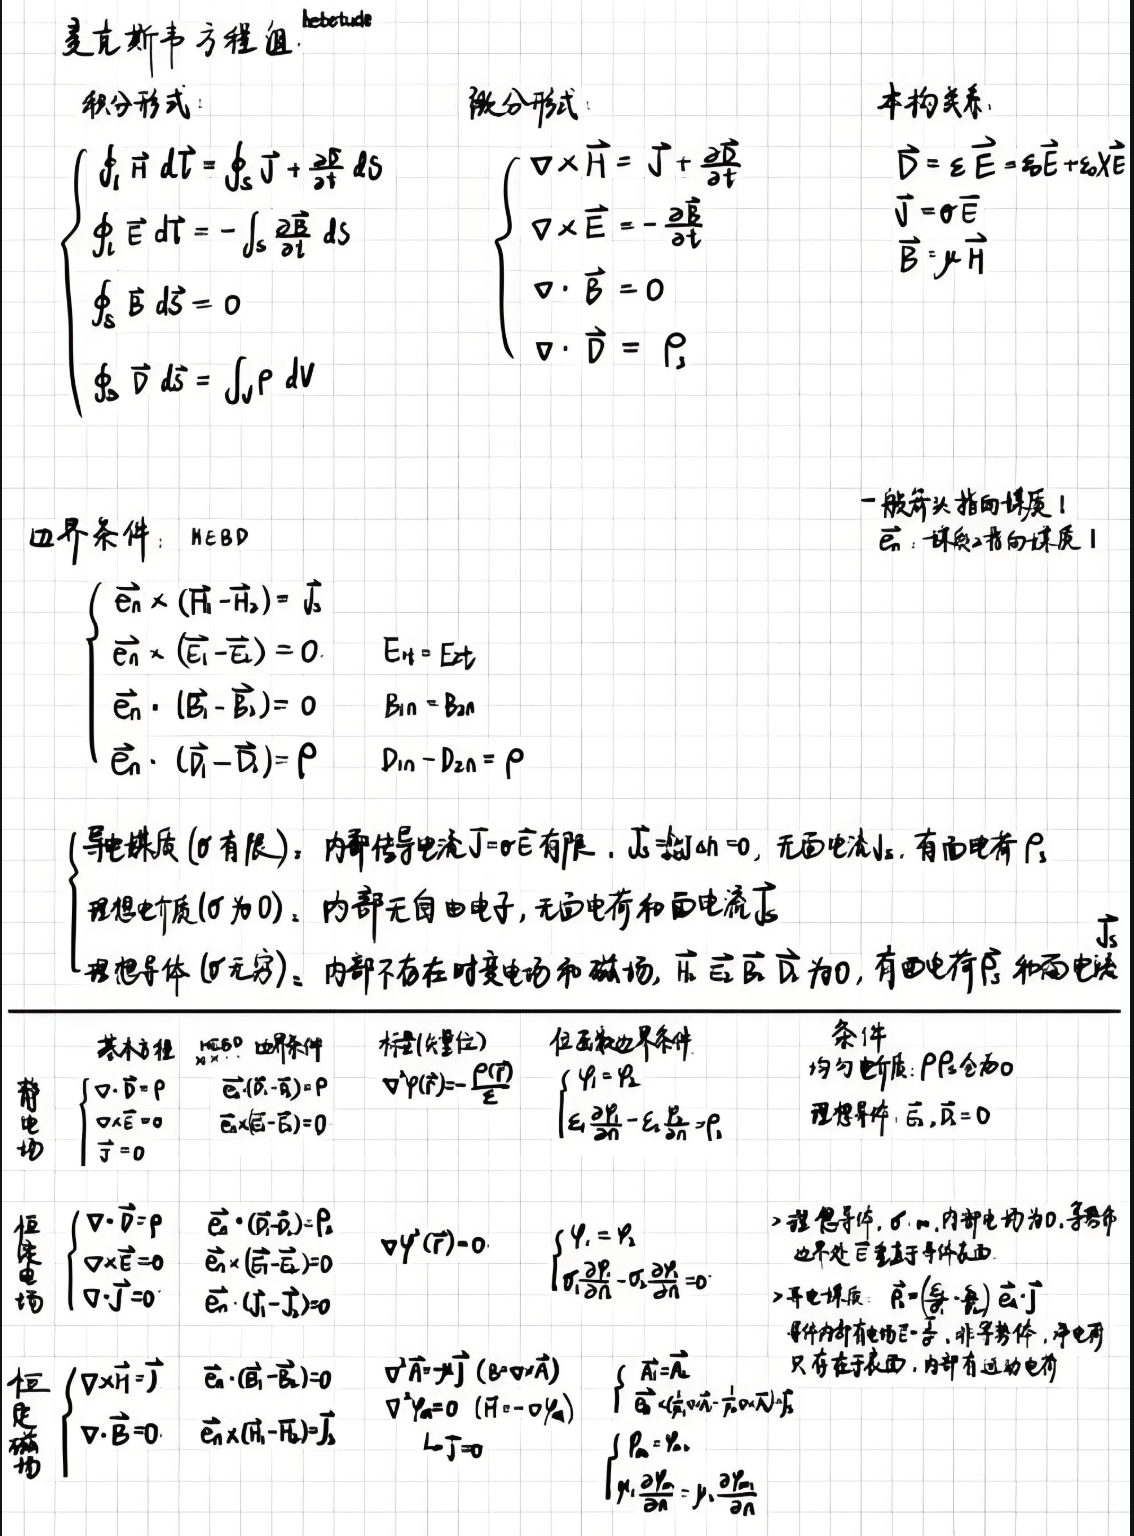 麦克斯韦方程组. hebetude
积分形式:
∮_l H⃗ dl⃗ = ∮_s J⃗ + ∂D⃗/∂t ds
∮_l E⃗ dl⃗ = -∫_s ∂B⃗/∂t ds
∮_s B⃗ ds⃗ = 0
∮_s D⃗ ds⃗ = ∫_V ρ dV
微分形式:
∇×H⃗ = J⃗ + ∂D⃗/∂t
∇×E⃗ = -∂B⃗/∂t
∇· B⃗ = 0
∇· D⃗ = ρ_s
本构关系:
D⃗ = εE⃗ = ε₀E⃗+ε₀χE⃗
J⃗ = σE⃗
B⃗ = μH⃗
一般箭头指向媒质1
e⃗n: 媒质2指向媒质1
边界条件: HEBD
e⃗n × (H⃗₁-H⃗₂) = J⃗s
e⃗n × (E⃗₁-E⃗₂) = 0. E₁t = E₂t
e⃗n · (B⃗₁-B⃗₂) = 0 B₁n = B₂n
e⃗n · (D⃗₁-D⃗₂) = ρ D₁n - D₂n = ρ
导电媒质(σ有限): 内部传导电流J⃗=σE⃗有限, J⃗s=lim JΔh=0, 无面电流Js, 有面电荷ρs
理想电介质(σ为0): 内部无自由电子, 无面电荷和面电流J⃗s
理想导体(σ无穷): 内部不存在时变电场和磁场, H⃗₂ E⃗₂ B⃗₂ D⃗₂为0, 有面电荷ρ⃗s和面电流J⃗s
基本方程 HEBD 边界条件 标量(矢量位) 位函数边界条件 条件
静电场
∇·D⃗=ρ
∇×E⃗=0
J⃗=0
e⃗n·(D⃗₁-D⃗₂)=ρ
e⃗n×(E⃗₁-E⃗₂)=0
∇²φ(r⃗)=-ρ(r⃗)/ε
φ₁=φ₂
ε₁ ∂φ₁/∂n - ε₂ φ₂/∂n = ρs
均匀电介质: ρρs全为0
理想导体: E⃗₂,D⃗₂=0
恒定电场
∇·D⃗=ρ
∇×E⃗=0
∇·J⃗=0
e⃗n·(D⃗₁-D⃗₂)=ρs
e⃗n×(E⃗₁-E⃗₂)=0
e⃗n·(J⃗₁-J⃗₂)=0
∇φ²(r⃗)=0.
φ₁=φ₂
σ₁ ∂φ₁/∂n - σ₂ ∂φ₂/∂n = 0
>理想导体, σ→∞, 内部电场为0, 等势体
边界处E⃗垂直于导体表面.
>导电媒质: e⃗n·J⃗
导体内部有电场E=J/σ, 非等势体, 净电荷
只存在于表面, 内部有运动电荷
恒定磁场
∇×H⃗=J⃗
∇·B⃗=0.
e⃗n·(B⃗₁-B⃗₂)=0
e⃗n×(H⃗₁-H⃗₂)=J⃗s
∇²A⃗=-μJ⃗ (B=∇×A⃗)
∇²φm=0 (H⃗=-∇φm)
↳J⃗=0
A⃗₁=A⃗₂
e⃗n×(1/μ₁∇×A⃗₁-1/μ₂∇×A⃗₂)=J⃗s
φm₁=φm₂
μ₁ ∂φm₁/∂n = μ₂ ∂φm₂/∂n